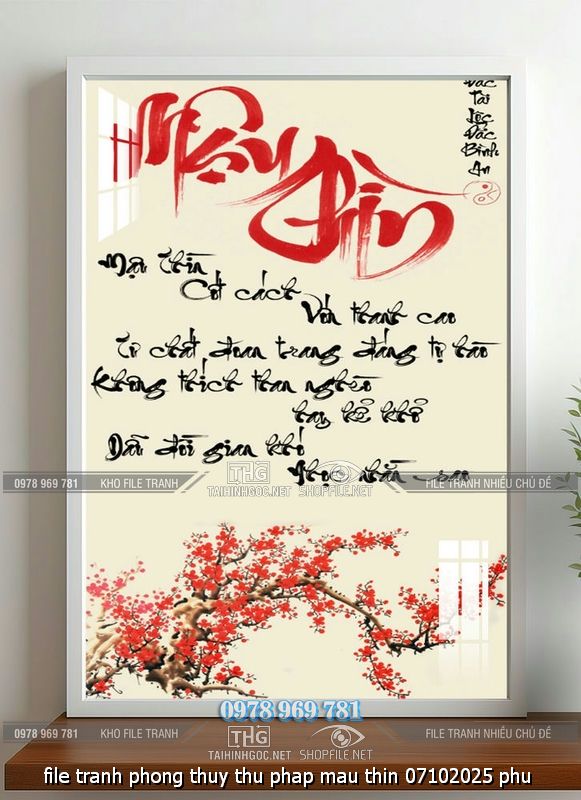 Đắc
Tài
Lộc
Đắc
Bình
An
Mậu Thìn
Mậu Thìn
Cốt cách
Vốn thanh cao
Tư chất đoan trang đáng tự hào
Không thích than nghèo
hay kể khổ
Dẫu đời gian khó
0978 969 781 KHO FILE TRANH THG TAIHINHGOC.NET SHOPFILE.NET FILE TRANH NHIỀU CHỦ ĐỀ
0978 969 781
0978 969 781 KHO FILE TRANH THG TAIHINHGOC.NET SHOPFILE.NET FILE TRANH NHIỀU CHỦ ĐỀ
file tranh phong thuy thu phap mau thin 07102025 phu